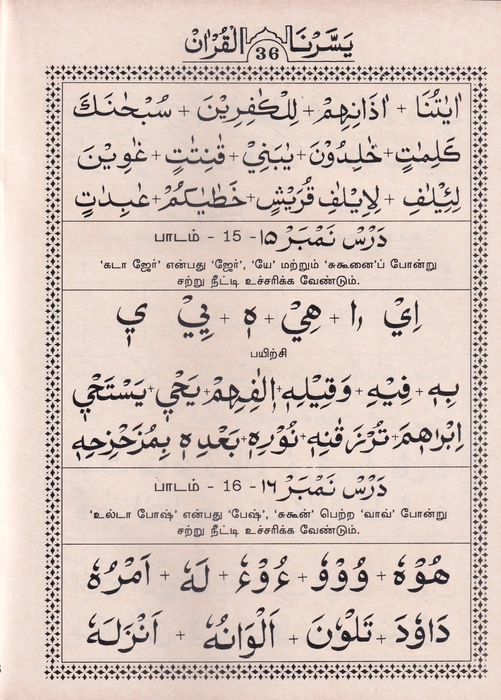 يَسَّرْنَا 36 الْقُرْاٰن
اٰيٰتُنَا + اٰذَانِهِمْ + لِلْكٰفِرِيْنَ + سُبْحٰنَكَ
كَلِمٰتٍ + خٰلِدُوْنَ + يٰبَنِيْ + قٰنِتٰتٍ + غٰوِيْنَ
لِئِيْلٰفِ + لِاِيْلٰفِ قُرَيْشٍ + خَطٰيٰكُمْ + عٰبِدٰتٍ
பாடம் - 15 - ۱۵ دَرْس نَمْبَر
'கடா ஜேர்' என்பது 'ஜேர்', 'யே' மற்றும் 'சுகூனை'ப் போன்று
சற்று நீட்டி உச்சரிக்க வேண்டும்.
اِيْ + اٖ + هِيْ + هٖ + يِيْ يٖ
பயிற்சி
بِهٖ + فِيْهِ + وَقِيْلِهٖ + اٖلٰفِهِمْ + يُحْيٖ + يَسْتَحْيٖ
اِبْرٰهٖمَ + تُرْزَقٰنِهٖ + نُوْرِهٖ + بَعْدِهٖ بِمُزَحْزِحِهٖ
பாடம் - 16 - ۱۶ دَرْس نَمْبَر
'உல்டா போஷ்' என்பது 'பேஷ்', 'சுகூன்' பெற்ற 'வாவ்' போன்று
சற்று நீட்டி உச்சரிக்க வேண்டும்.
هُوْهٗ + وُوْوٗ + ءُوْءٗ + لَهٗ + اَمْرُهٗ
دَاوٗدَ + تَلْوٗنَ + اَلْوَانُهٗ + اَنْزَلَهٗ